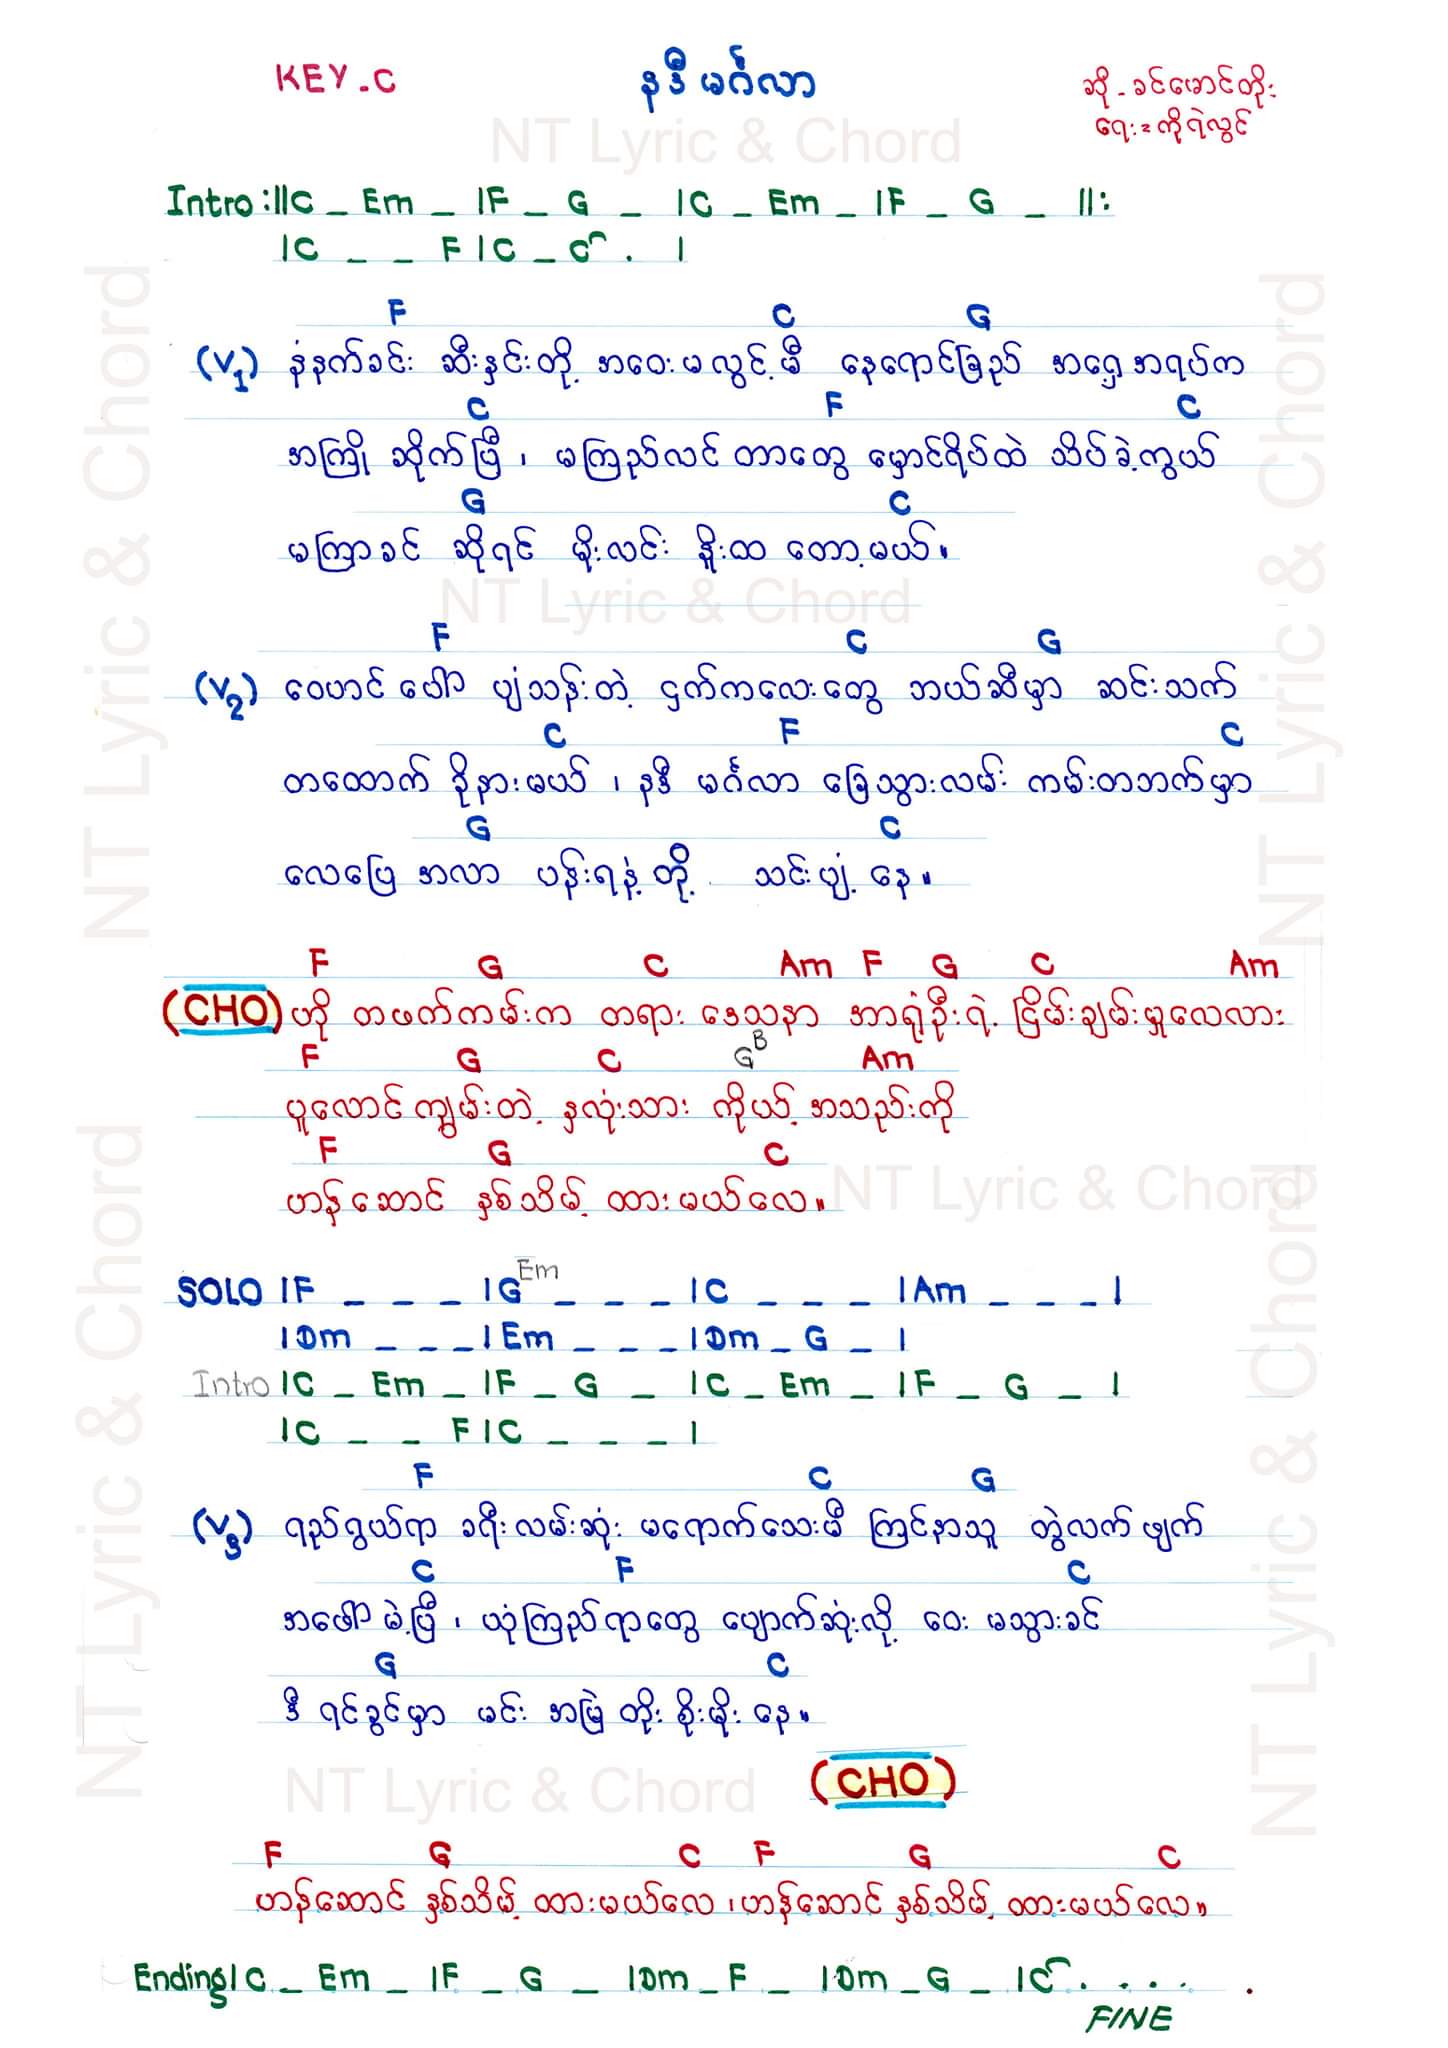 KEY_C
နဒီမင်္ဂလာ
ဆို - ခင်မောင်တိုး
ရေး = ကိုရဲလွင်
NT Lyric & Chord
Intro :||C _ Em _ |F _ G _ |C _ Em _ |F _ G _ ||:
|C _ _ F |C _ C . |
F C G
(V1) နံနက်ခင်း ဆီးနှင်းတို့ အဝေးမလွင့်မီ နေရောင်ခြည် အရှေ့အရပ်က
C F C
အကြို ဆိုက်ပြီ ၊ မကြည်လင် တာတွေ မှောင်ရိပ်ထဲ သိပ်ခဲ့ကွယ်
G C
မကြာခင် ဆိုရင် မိုးလင်း နိုးထ တော့မယ်။
NT Lyric & Chord
F C G
(V2) ဝေဟင် ပေါ် ပျံသန်းတဲ့ ငှက်ကလေးတွေ ဘယ်ဆီမှာ ဆင်းသက်
C F C
တထောက် ခိုနားမယ် ၊ နဒီ မင်္ဂလာ ခြေသွားလမ်း ကမ်းတဘက်မှာ
G C
လေပြေ အလာ ပန်းရနံ့ တို့ သင်းပျံ့ နေ။
F G C Am F G C Am
(CHO) ဟို တဖက်ကမ်းက တရား ဒေသနာ အာရုံဦးရဲ့ ငြိမ်းချမ်းမှုလေလား
F G C G B Am
ပူလောင်ကျွမ်းတဲ့ နှလုံးသား ကိုယ့် အသည်းကို
F G C
ဟန်ဆောင် နှစ်သိမ့် ထားမယ်လေ။
NT Lyric & Chord
SOLO |F _ _ _ |G Em _ _ _ |C _ _ _ |Am _ _ _ |
|Dm _ _ _ |Em _ _ _ |Dm _ G _ |
Intro |C _ Em _ |F _ G _ |C _ Em _ |F _ G _ |
|C _ _ F |C _ _ _ |
F C G
(V3) ရည်ရွယ်ရာ ခရီးလမ်းဆုံး မရောက်သေးမီ ကြင်နာသူ တွဲလက် ဖျက်
C F C
အဖော် မဲ့ပြီ ၊ ယုံကြည်ရာတွေ ပျောက်ဆုံးလို့ ဝေး မသွားခင်
G C
ဒီ ရင်ခွင်မှာ မင်း အမြဲ တိုး စိုးမိုး နေ။
NT Lyric & Chord
(CHO)
F G C F G C
ဟန်ဆောင် နှစ်သိမ့် ထားမယ်လေ ၊ ဟန်ဆောင် နှစ်သိမ့် ထားမယ်လေ။
Ending |C _ Em _ |F _ G _ |Dm _ F _ |Dm _ G _ |C . . . . .
FINE
NT Lyric & Chord
NT Lyric & Chord
NT Lyric & Chord
NT Lyric & Chord